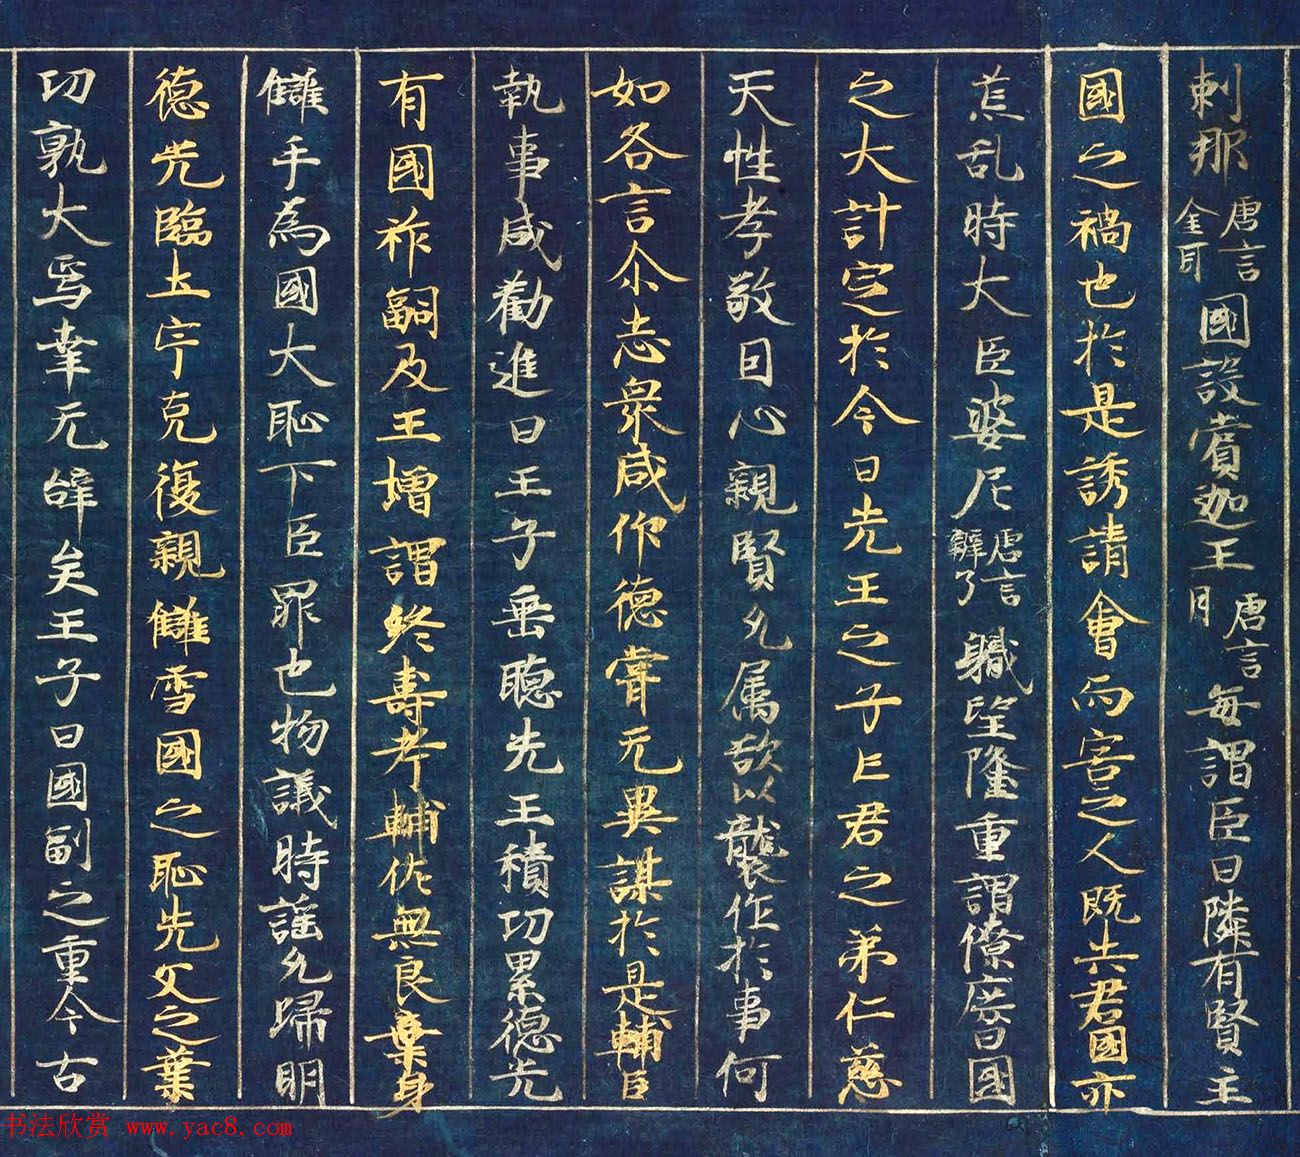 剌那唐言金耳國設賞迦王唐言月每謂臣曰隣有賢主
國之禍也於是誘請會而害之人既失君國亦
荒乱時大臣婆尼唐言辯了職望隆重謂僚庶曰國
之大計定於今日先王之子亡君之弟仁慈
天性孝敬因心親賢允属欲以襲作於事何
如各言尒志衆咸仰德甞无異謀於是輔臣
執事咸勸進曰王子垂聽先王積功累德光
有國祚嗣及王增謂終壽考輔佐無良棄身
讎手為國大恥下臣罪也物議時謠允歸明
德光臨土宇克復親讎雪國之恥光父之葉
功孰大焉幸无辝矣王子曰國副之重今古
书法欣赏 www.yac8.com